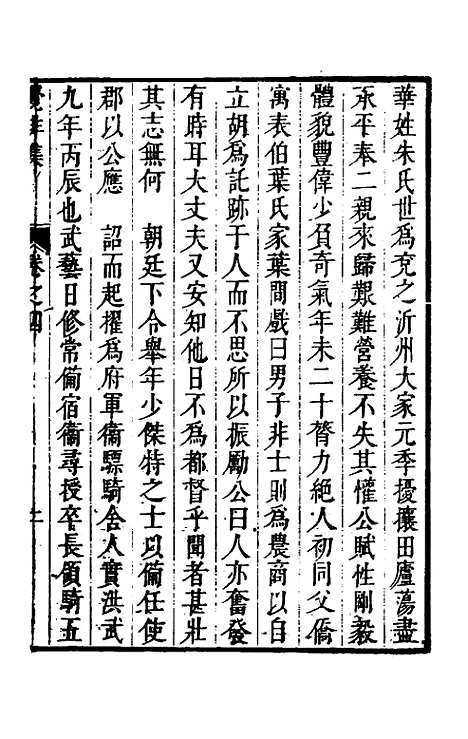 華姓朱氏世爲兖之沂州大家元季擾攘田廬蕩盡
承平奉二親來歸艱難營養不失其懽公賦性剛毅
體貌豐偉少負奇氣年未二十膂力絕人初同父僑
寓表伯葉氏家葉間戲曰男子非士則爲農商以自
立胡爲託跡于人而不思所以振勵公曰人亦奮發
有時耳大丈夫又安知他日不爲都督乎聞者甚壯
其志無何　朝廷下令舉年少傑特之士以備任使
郡以公應　詔而起擢爲府軍衞驃騎舍人實洪武
九年丙辰也武藝日修常備宿衞尋授卒長領騎五
集
卷之四